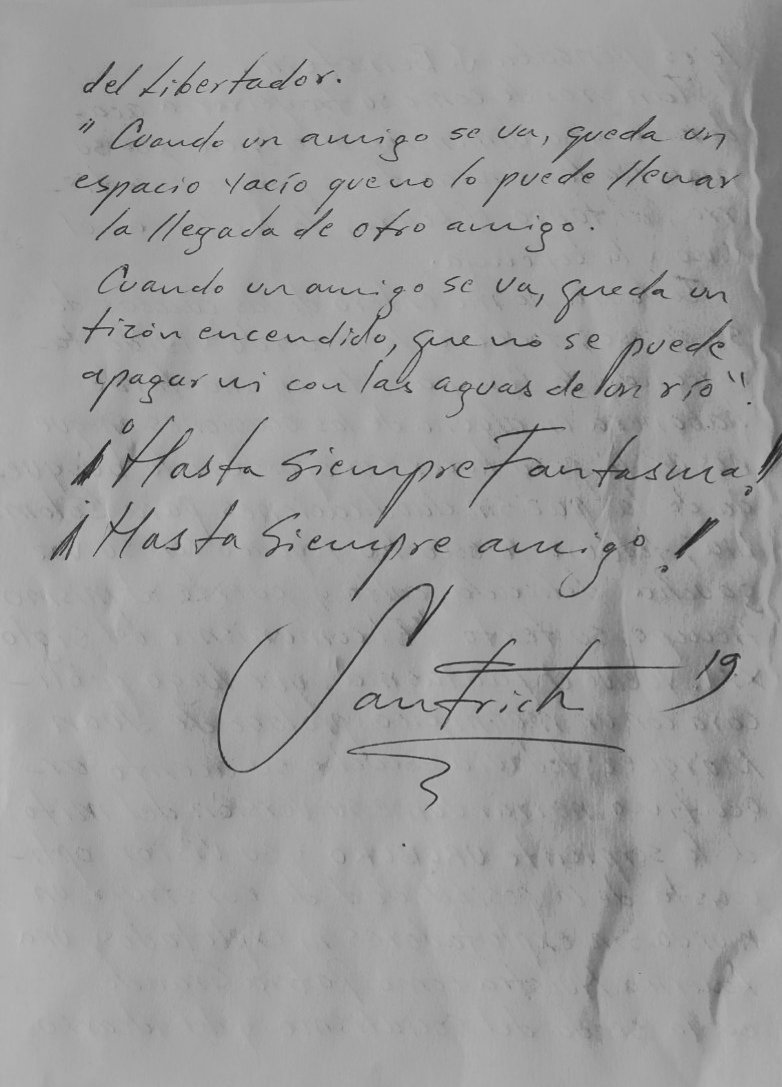 del Libertador.
"Cuando un amigo se va, queda un
espacio vacío que no lo puede llenar
la llegada de otro amigo.
Cuando un amigo se va, queda un
tizón encendido, que no se puede
apagar ni con las aguas de un río".
¡Hasta siempre Fantasma!
¡Hasta siempre amigo!
Santrich 19